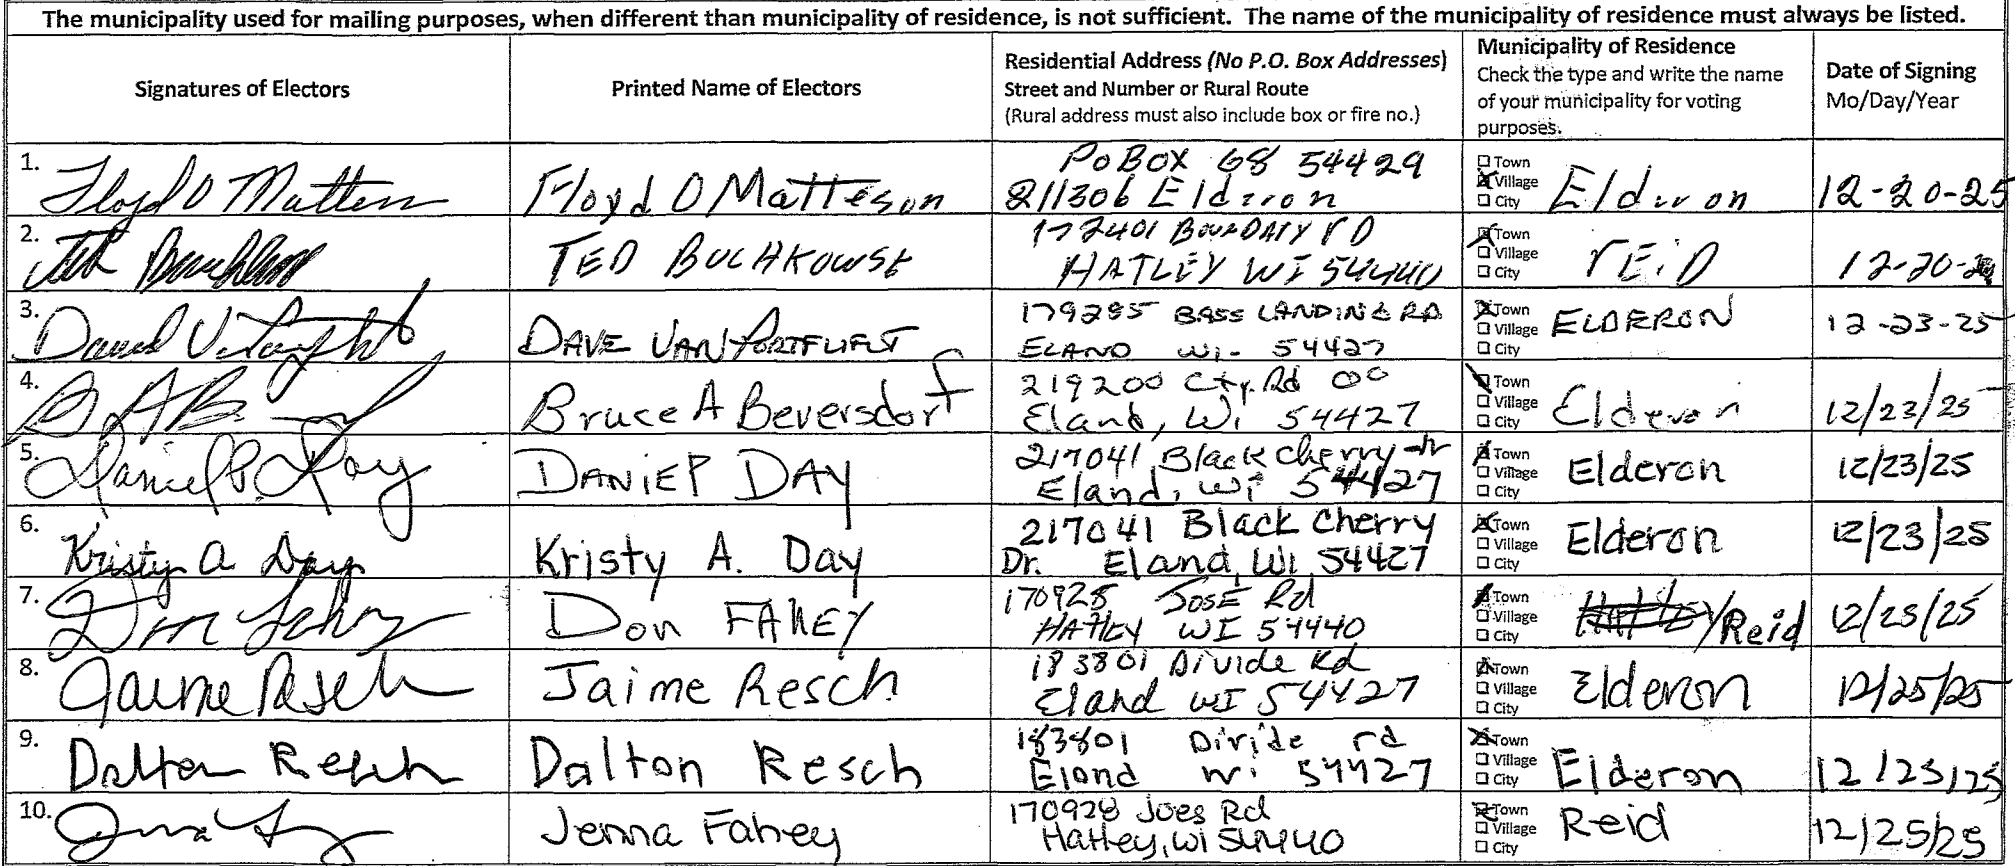 The municipality used for mailing purposes, when different than municipality of residence, is not sufficient. The name of the municipality of residence must always be listed.
Signatures of Electors
Printed Name of Electors
Residential Address (No P.O. Box Addresses)
Street and Number or Rural Route
(Rural address must also include box or fire no.)
Municipality of Residence
Check the type and write the name
of your municipality for voting
purposes.
Date of Signing
Mo/Day/Year
1.
Floyd O Matteson
Floyd O Matteson
PO BOX 68 54429
211306 Elderon
Town
Village
City
Elderon
12-20-25
2.
Ted
TED BUCHKOWSK
172401 BOUNDARY RD
HATLEY WI 54440
Town
Village
City
REID
12-20-
3.
David
DAVE VANPORTFLIET
179285 BASS LANDING RD
ELAND WI- 54427
Town
Village
City
ELDERON
12-23-25
4.
B A B
Bruce A Beversdorf
219200 Cty. Rd OO
Eland, Wi 54427
Town
Village
City
Elderon
12/23/25
5.
Daniel P Day
DANIEL P DAY
217041 Black Cherry dr
Eland, Wi 54427
Town
Village
City
Elderon
12/23/25
6.
Kristy A Day
Kristy A. Day
217041 Black Cherry
Dr. Eland, Wi 54427
Town
Village
City
Elderon
12/23/25
7.
Don Fahey
Don FAHEY
170928 JOSE Rd
HATLEY WI 54440
Town
Village
City
Hatley/Reid
12/25/25
8.
Jaime Resch
Jaime Resch
183801 Divide Rd
Eland WI 54427
Town
Village
City
Elderon
12/25/25
9.
Dalton Resch
Dalton Resch
183801 Divide rd
Eland Wi 54427
Town
Village
City
Elderon
12/25/25
10.
Jenna Fahey
170928 Joes Rd
Hatley, WI 54440
Town
Village
City
Reid
12/25/25